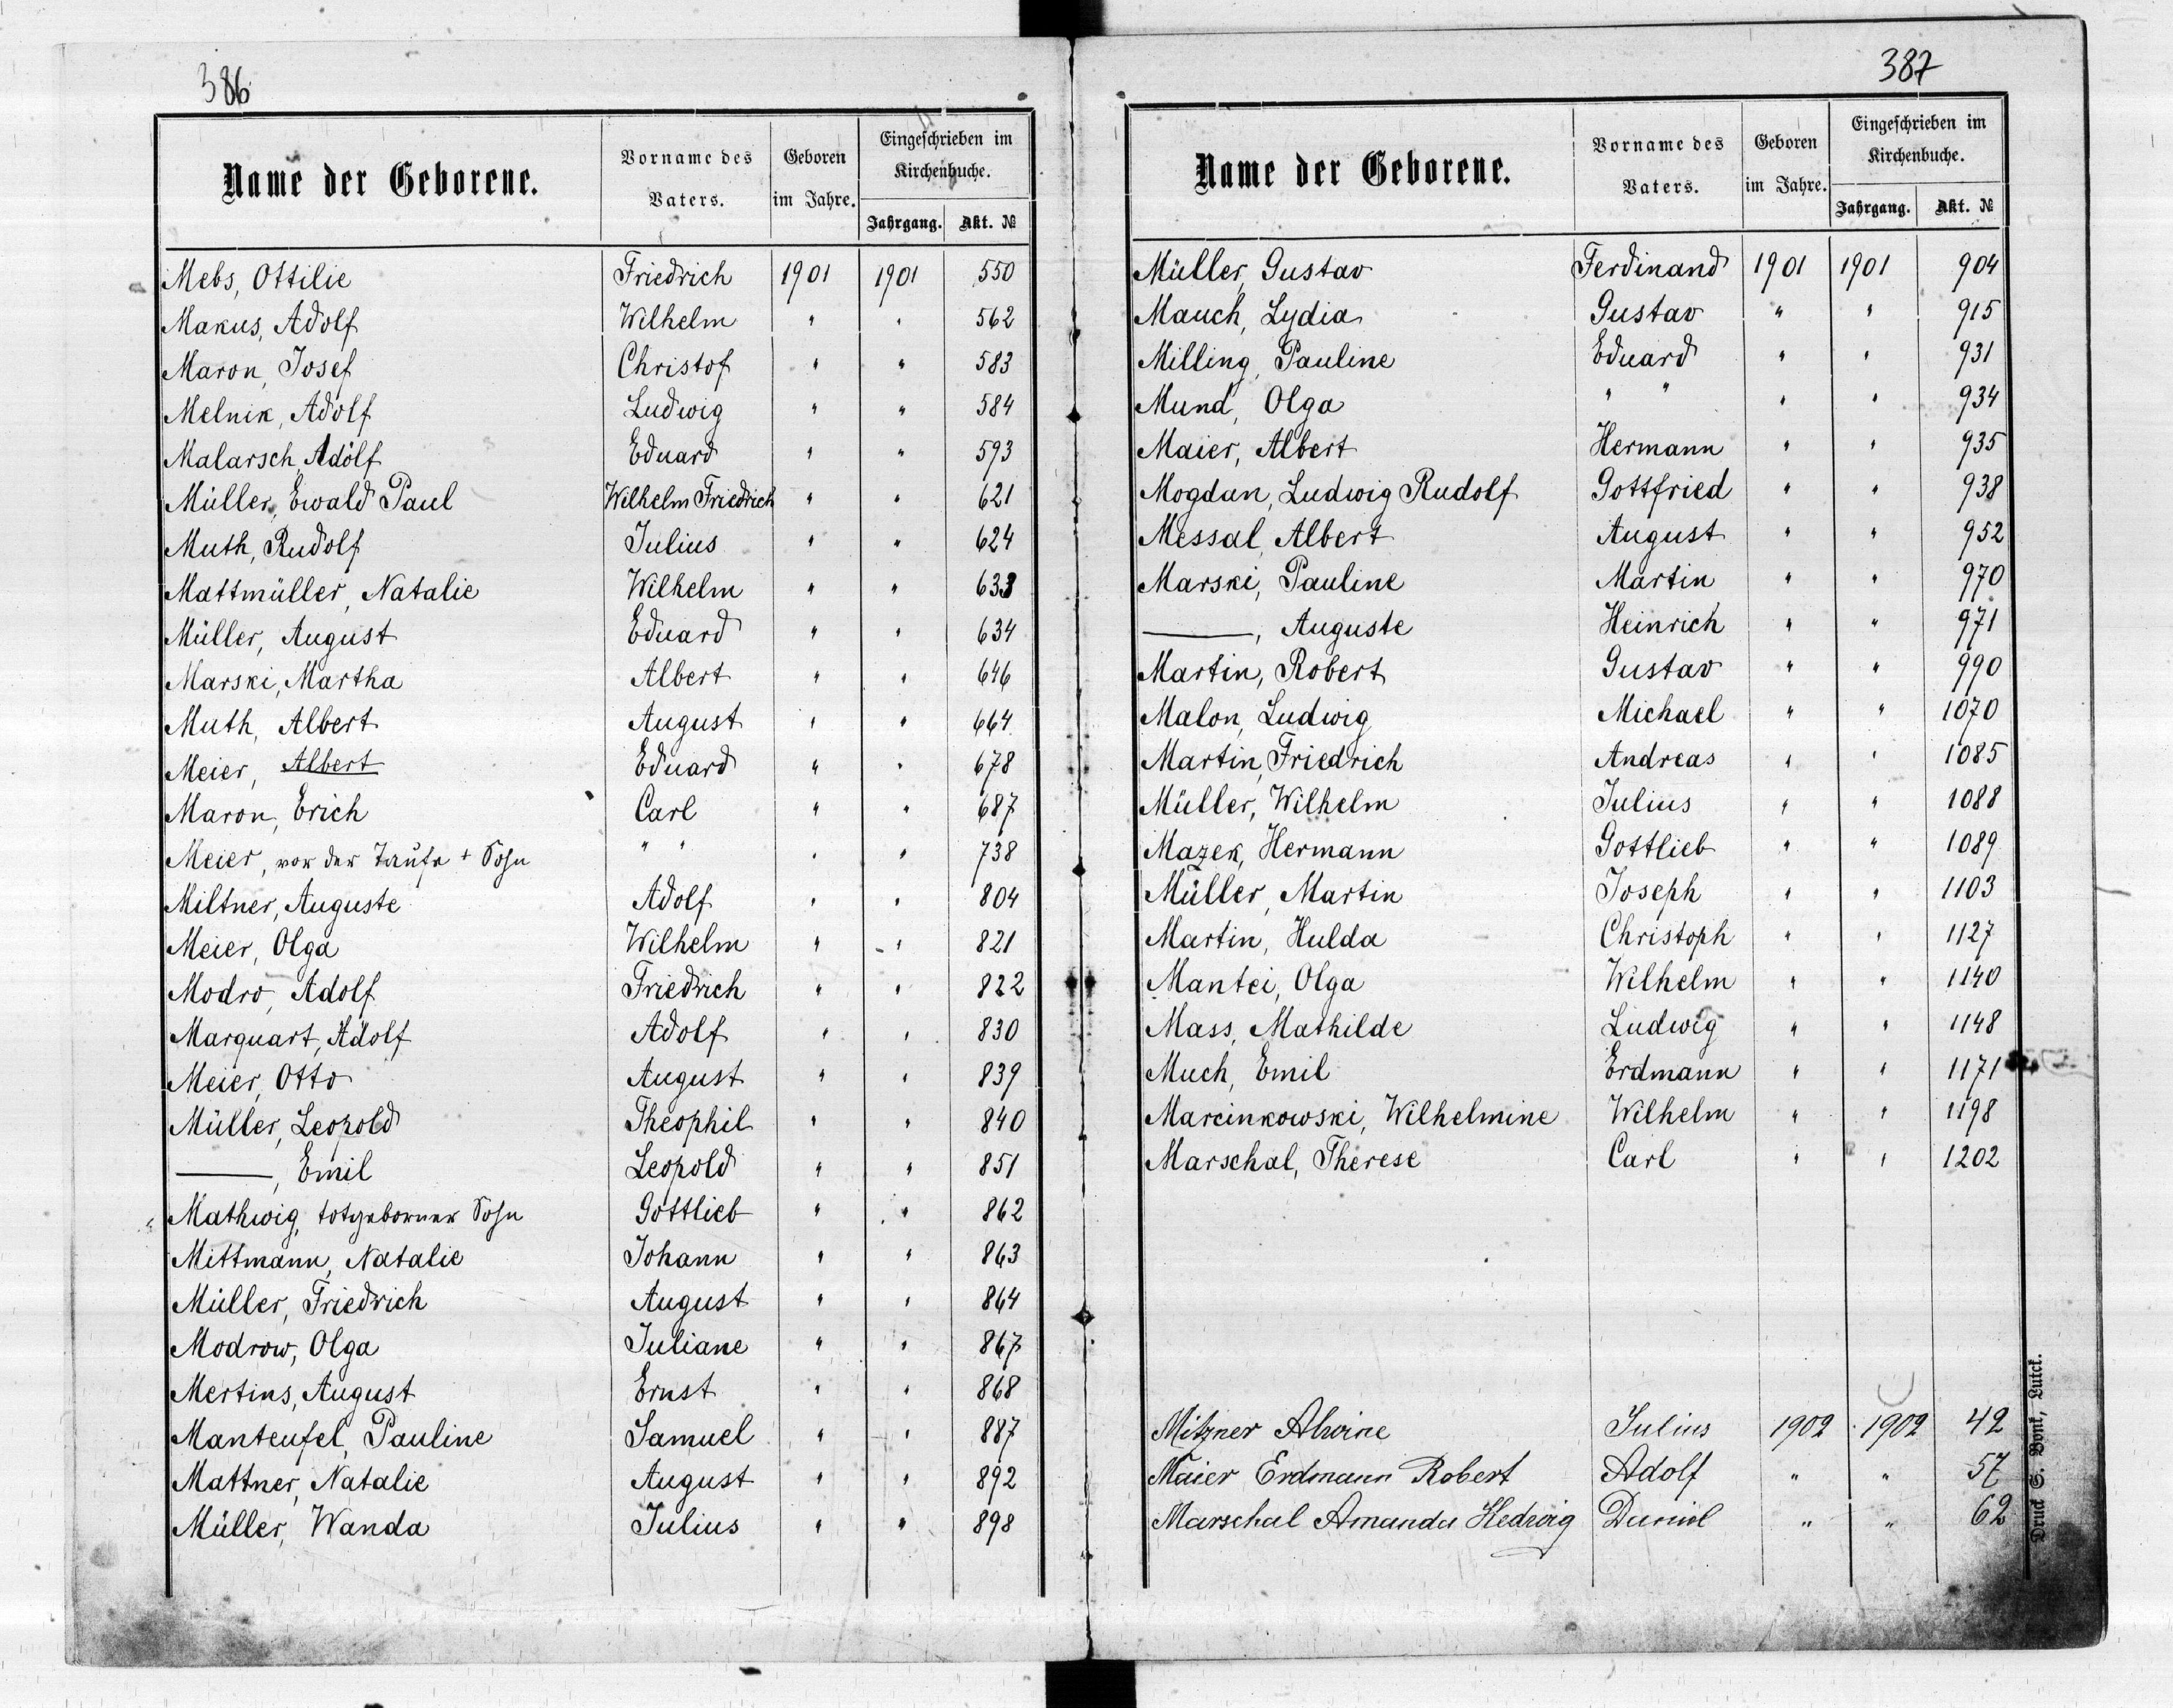 386
Name der Geborene. Vorname des Vaters. Geboren im Jahre. Eingeschrieben im Kirchenbuche. Jahrgang. Akt. №
Mebs, Ottilie Friedrich 1901 1901 550
Makus, Adolf Wilhelm " " 562
Maron, Josef Christof " " 583
Melnik, Adolf Ludwig " " 584
Malarsch, Adolf Eduard " " 593
Müller, Ewald Paul Wilhelm Friedrich " " 621
Muth, Rudolf Julius " " 624
Mattmüller, Natalie Wilhelm " " 633
Müller, August Eduard " " 634
Marski, Martha Albert " " 646
Muth, Albert August " " 664
Meier, Albert Eduard " " 678
Maron, Erich Carl " " 687
Meier, vor der Taufe + Sohn " " " " 738
Miltner, Auguste Adolf " " 804
Meier, Olga Wilhelm " " 821
Modro, Adolf Friedrich " " 822
Marquart, Adolf Adolf " " 830
Meier, Otto August " " 839
Müller, Leopold Theophil " " 840
———, Emil Leopold " " 851
Mathwig, totgeborner Sohn Gottlieb " " 862
Mittmann, Natalie Johann " " 863
Müller, Friedrich August " " 864
Modrow, Olga Juliane " " 867
Mertins, August Ernst " " 868
Manteufel, Pauline Samuel " " 887
Mattner, Natalie August " " 892
Müller, Wanda Julius " " 898
387
Name der Geborene. Vorname des Vaters. Geboren im Jahre. Eingeschrieben im Kirchenbuche. Jahrgang. Akt. №
Müller, Gustav Ferdinand 1901 1901 904
Mauch, Lydia Gustav " " 915
Milling, Pauline Eduard " " 931
Mund, Olga " " " " 934
Maier, Albert Hermann " " 935
Mogdan, Ludwig Rudolf Gottfried " " 938
Messal, Albert August " " 952
Marski, Pauline Martin " " 970
———, Auguste Heinrich " " 971
Martin, Robert Gustav " " 990
Malon, Ludwig Michael " " 1070
Martin, Friedrich Andreas " " 1085
Müller, Wilhelm Julius " " 1088
Mazek, Hermann Gottlieb " " 1089
Müller, Martin Joseph " " 1103
Martin, Hulda Christoph " " 1127
Mantei, Olga Wilhelm " " 1140
Mass, Mathilde Ludwig " " 1148
Much, Emil Erdmann " " 1171
Marcinkowski, Wilhelmine Wilhelm " " 1198
Marschal, Therese Carl " " 1202
Mitzner Alwine Julius 1902 1902 42
Maier Erdmann Robert Adolf " " 57
Marschal Amanda Hedwig Daniel " " 62
Druck S. Bonk, Lutck.